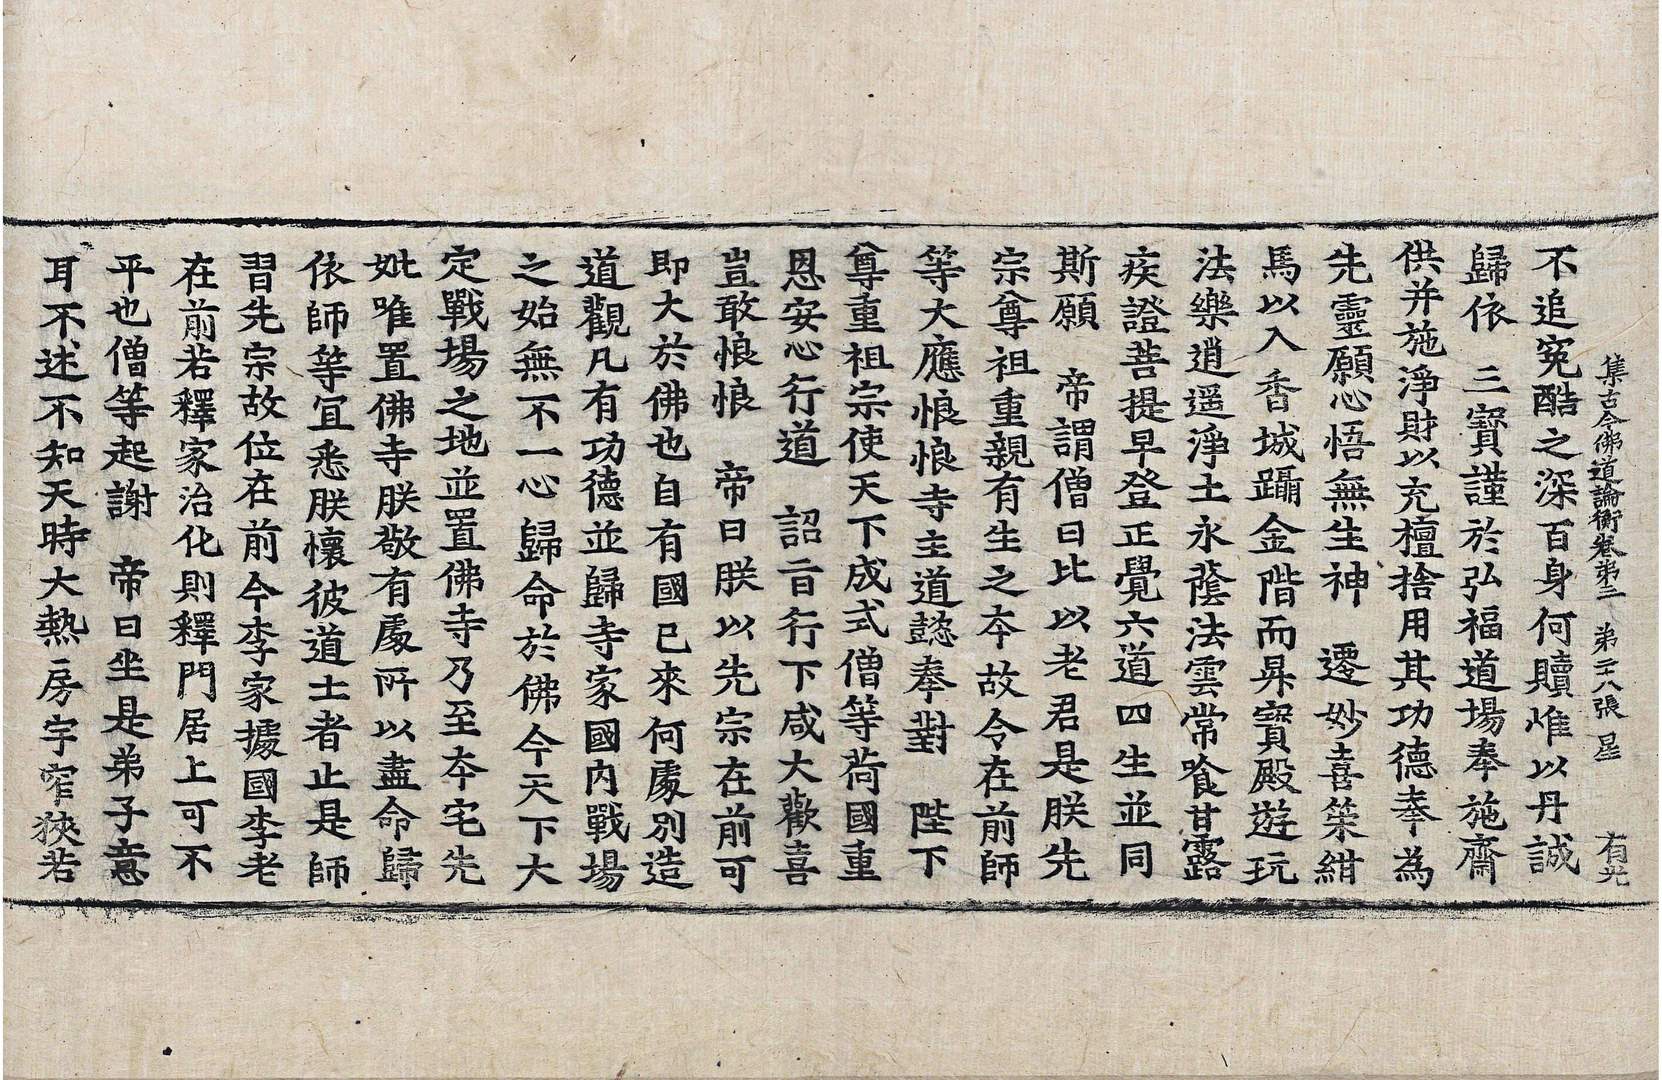 集古今佛道論衡卷弟三 弟二十八張 星 有光
不追寃酷之深百身何贖惟以丹誠
歸依 三寶謹於弘福道場奉施齋
供并施淨財以充檀捨用其功德奉為
先靈願心悟無生神 遷妙喜筞紺
馬以入香城躡金階而昇寶殿遊玩
法樂逍遥淨土永蔭法雲常飡甘露
疾證菩提早登正覺六道四生並同
斯願 帝謂僧曰比以老君是朕先
宗尊祖重親有生之夲故令在前師
等大應悢悢寺主道懿奉對 陛下
尊重祖宗使天下成式僧等荷國重
恩安心行道 詔旨行下咸大歡喜
豈敢悢悢 帝曰朕以先宗在前可
即大於佛也自有國已來何處別造
道觀凡有功德並歸寺家國内戰場
之始無不一心歸命於佛今天下大
定戰場之地並置佛寺乃至夲宅先
妣唯置佛寺朕敬有處所以盡命歸
依師等宜悉朕懷彼道士者止是師
習先宗故位在前今李家據國李老
在前若釋家治化則釋門居上可不
平也僧等起謝 帝曰坐是弟子意
耳不述不知天時大熱房宇窄狹若